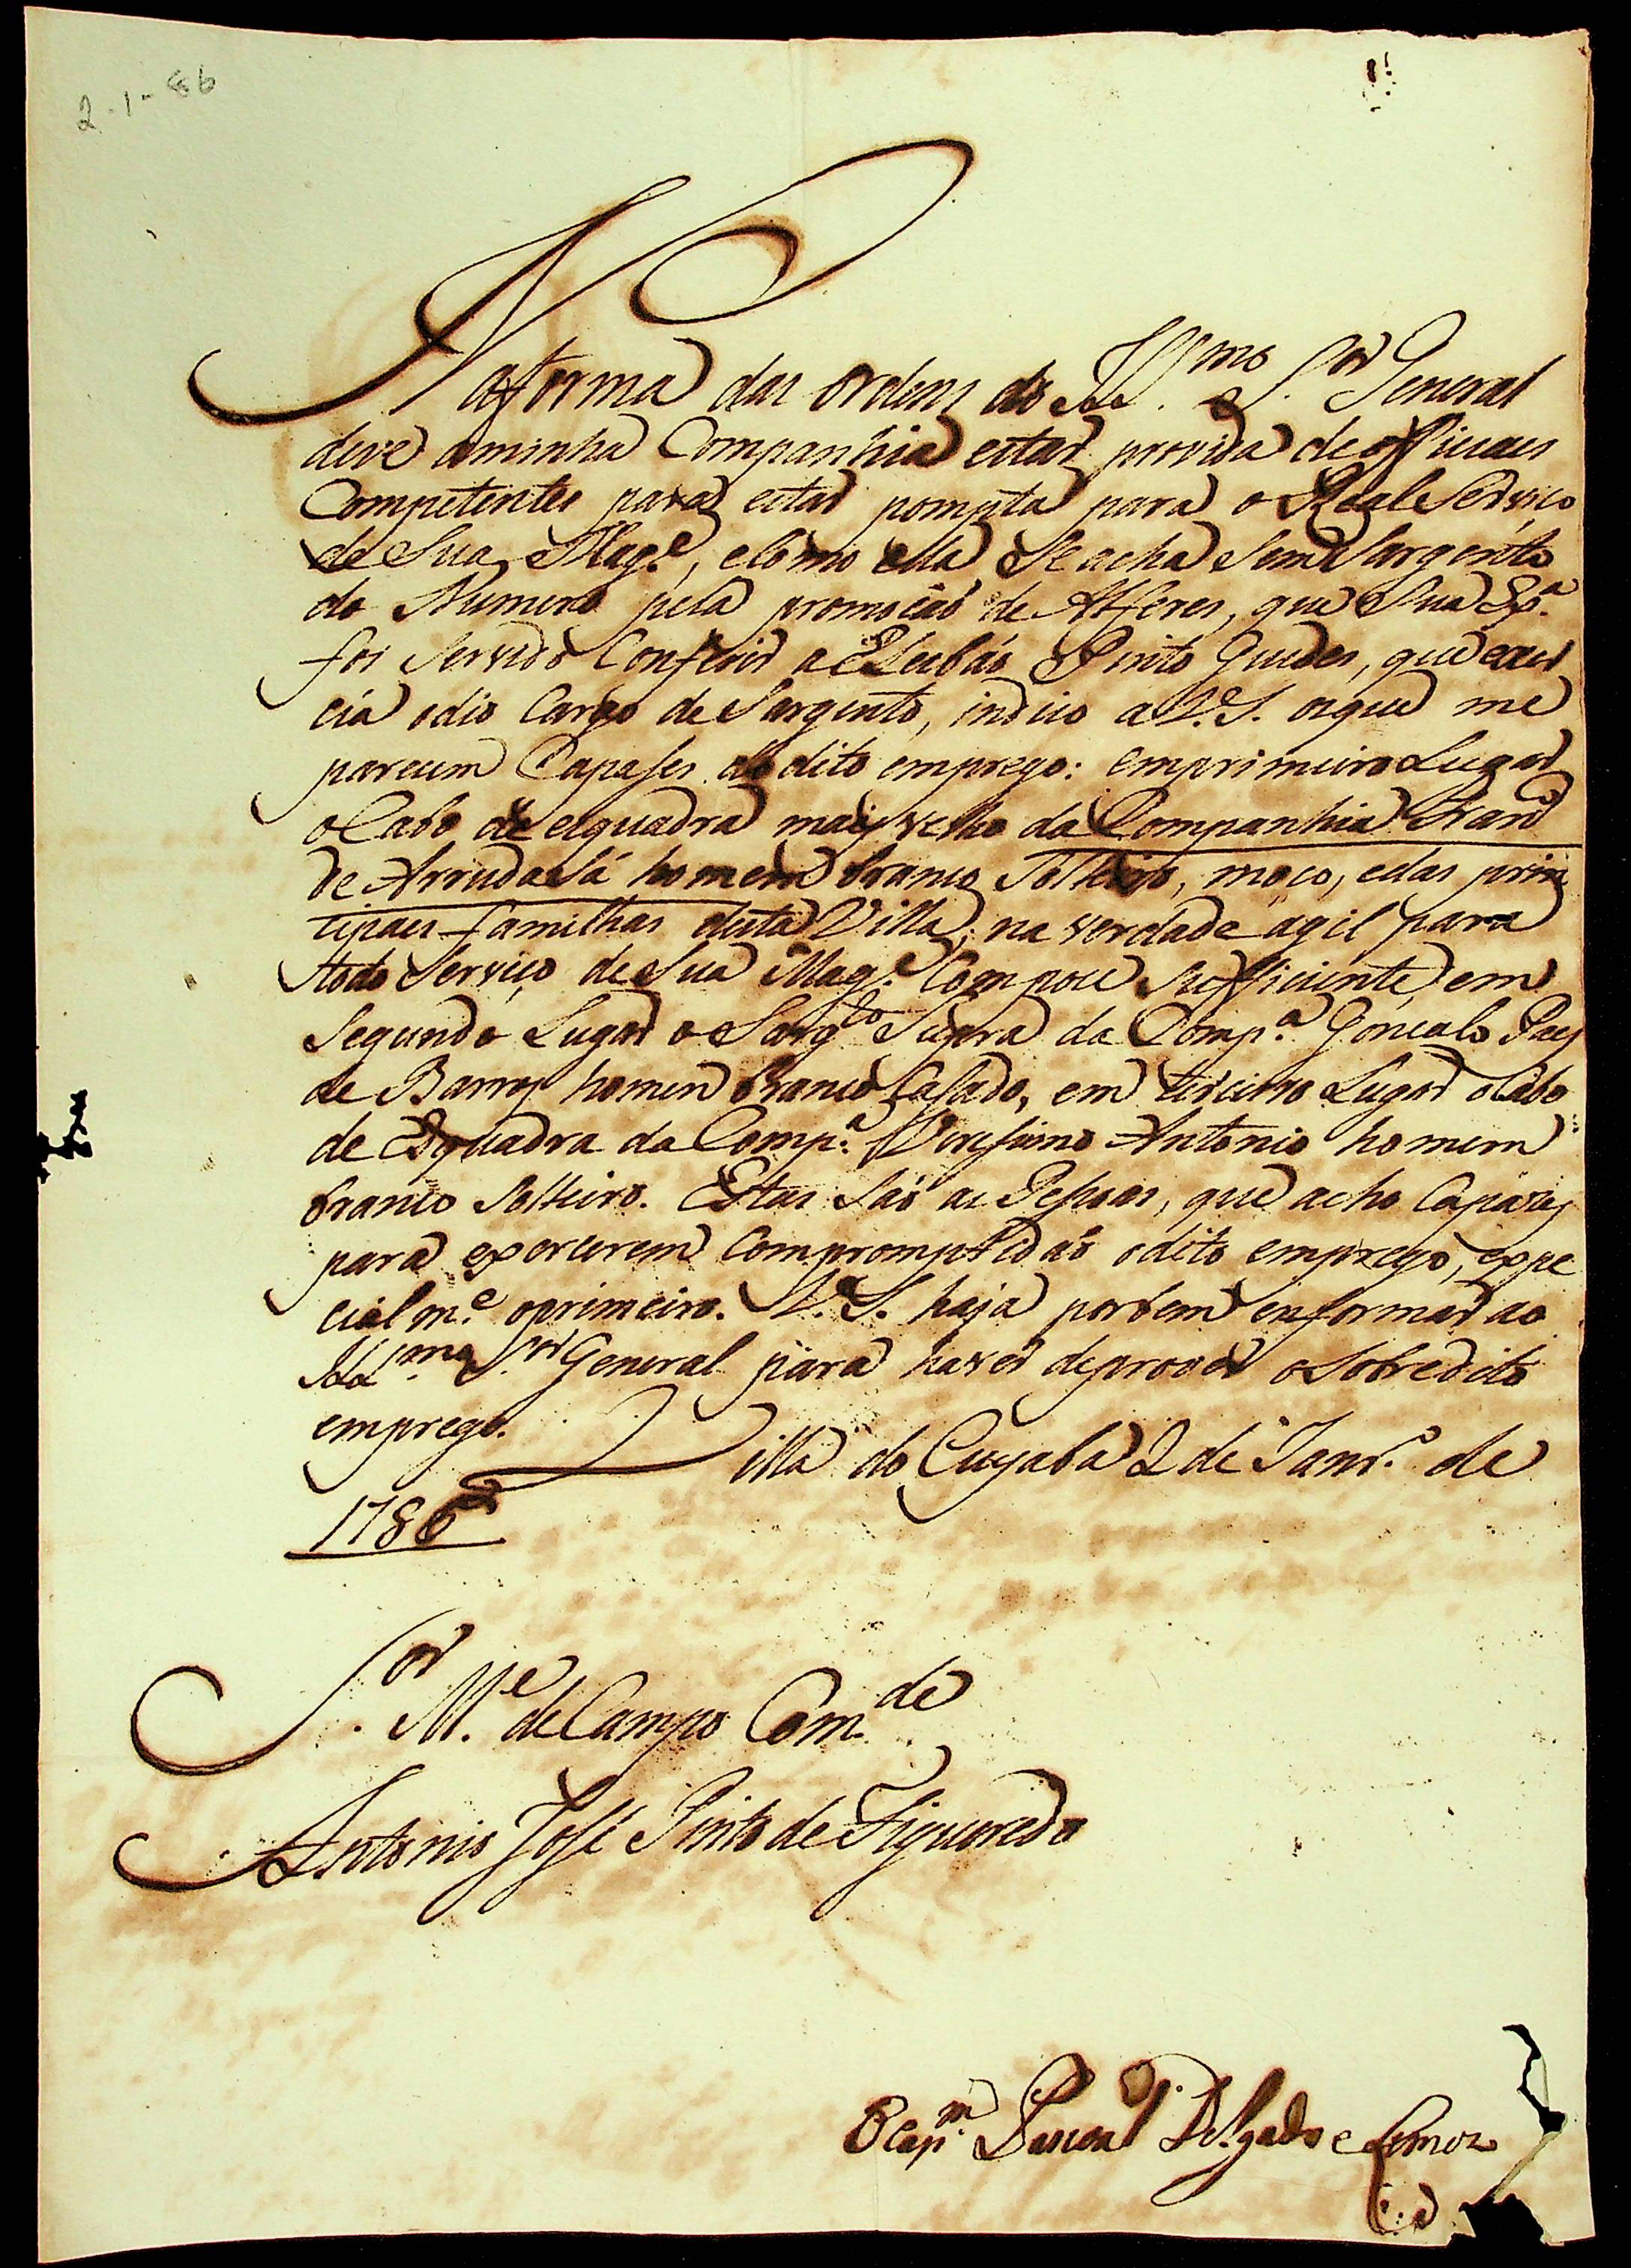 2-1-86
Na forma das ordens do Ill.mo e S.or General
deve aminha Companhia estar provida de officiaes
Competentes para estar pompta para o Real Serviço
de Sua Mag.e, e como ella Se acha Sem Sargento
do Numero pela promoçaõ de Alferes, que Sua Ex.a
foi Servido Conferir a Pinto Guedes, que exer
cia odio Cargo de Sargento, indico a V.S. osque me
parecem Capases do dito emprego: emprimeiro Lugar
o Cabo de esquadra mais velho da Companhia
de Arruda Sá homem branco Solteiro, moço, edas prin
cipaes familhas desta Villa; na verdade agil para
todo Serviço de Sua Mag.e Com poce Sufficiente, em
Segundo Lugar o Sarg.to Supra da Comp.a Goncalo Paes
de Barros homem branco Casado, em terceiro Lugar o Cabo
de Esquadra da Comp.a Veressimo Antonio homem
branco Solteiro. Estas Saõ as Pessoas, que acho Capazes
para exercerem Com promptidaõ o dito emprego, expe
cialm.e oprimeiro. V.S. haja por bem enformar ao
Ill.mo S.or General para haver de prover o Sobredito
emprego. Villa do Cuyaba 2 de Janr.o de
1786
S.or M.e de Campo Com.de
Antonio José Pinto de Figueredo
O Cap.m Pascoal Delgado e Lemos